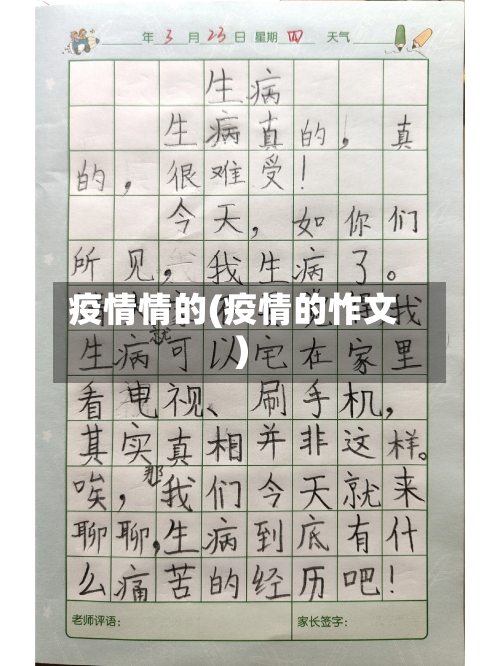 年 3 月 23 日 星期 四 天气
生病
生病真的，真
的，很难受！
今天，如你们
所见，我生病了。
疫情情的(疫情的怍文
)
我
就
生病可以宅在家里
看电视、刷手机，
其实真相并非这样。
那
唉，我们今天就来
聊聊，生病到底有什
么痛苦的经历吧！
老师评语： 家长签字：